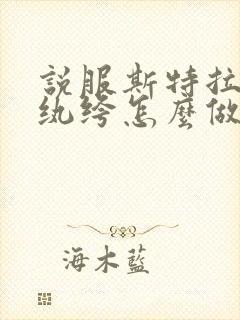 説服斯特拉
纨绔怎麼做
海木藍